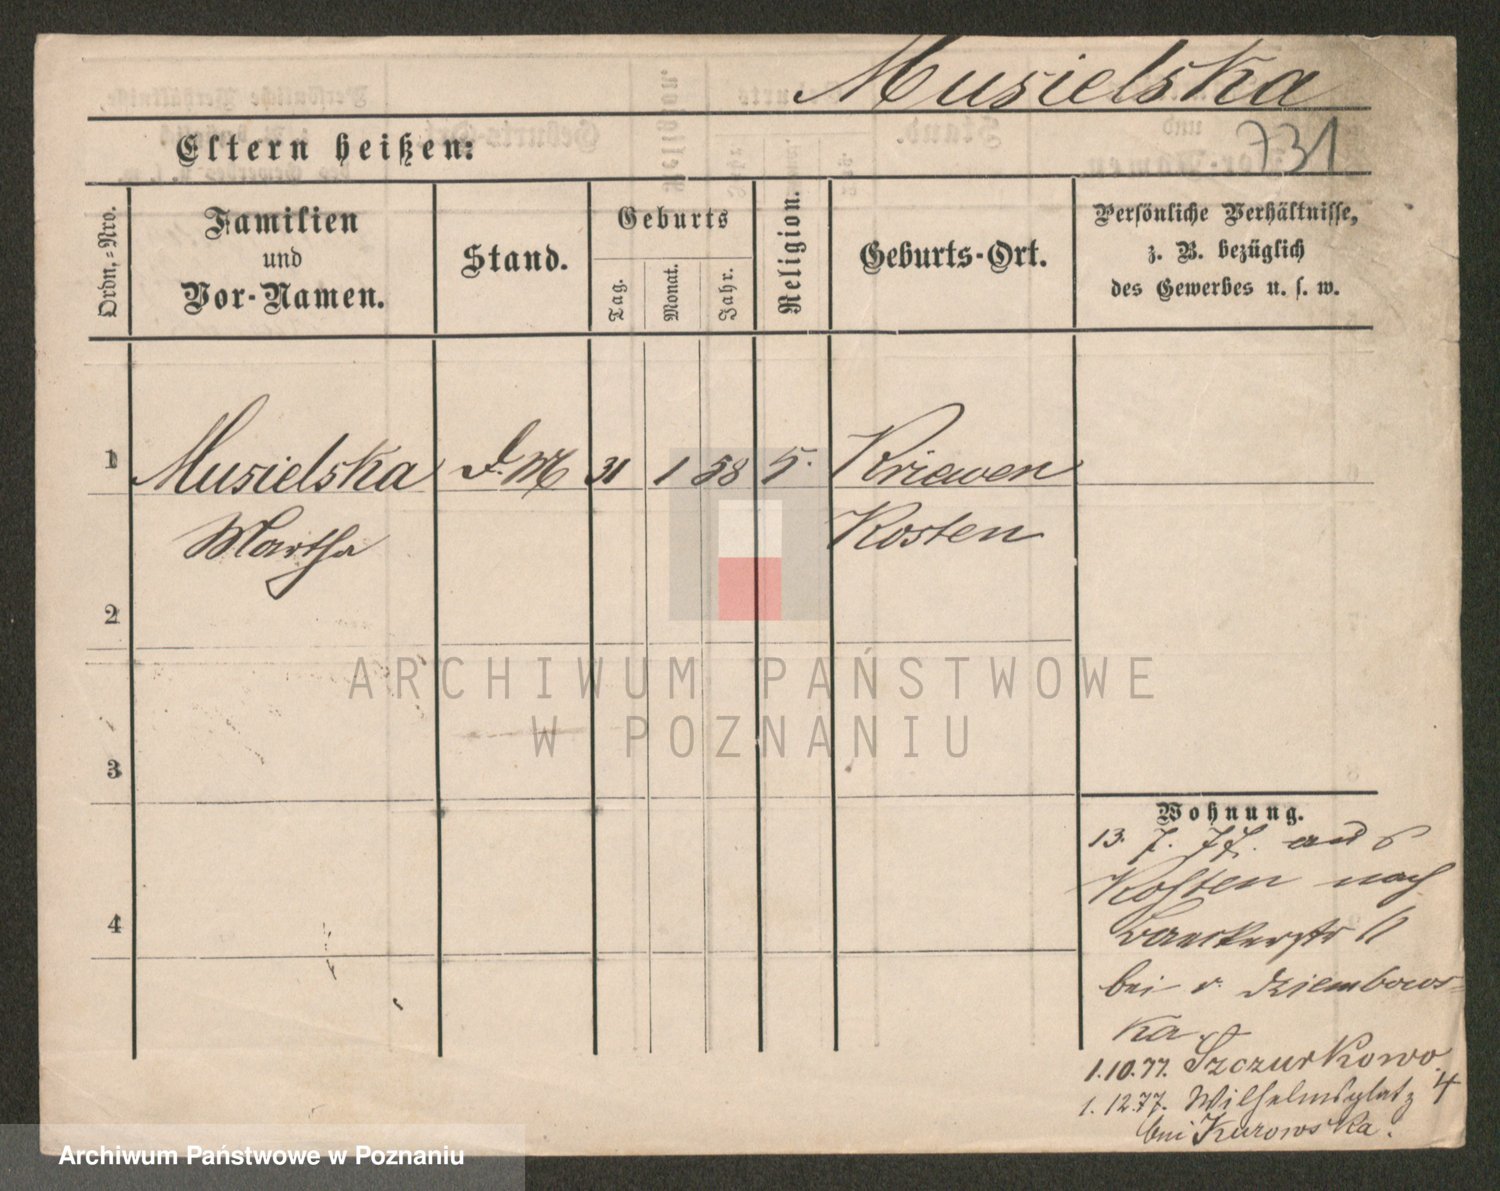 Musielska
731
Eltern heißen:
Ordn.-Nro.
Familien
und
Vor-Namen.
Stand.
Geburts
Tag.
Monat.
Jahr.
Religion.
Geburts-Ort.
Persönliche Verhältnisse,
z. B. bezüglich
des Gewerbes u. s. w.
1 Musielska D. M 31 1 58 Kriewen
Martha Kosten
2
3
4
Wohnung.
13. 7. 77. aus
Kosten nach
bei v. Dziembows-
ka.
1.10.77. Szczurkowo
1.12.77. Wilhelmsplatz 4
bei Kurowska.
ARCHIWUM PAŃSTWOWE
W POZNANIU
Archiwum Państwowe w Poznaniu